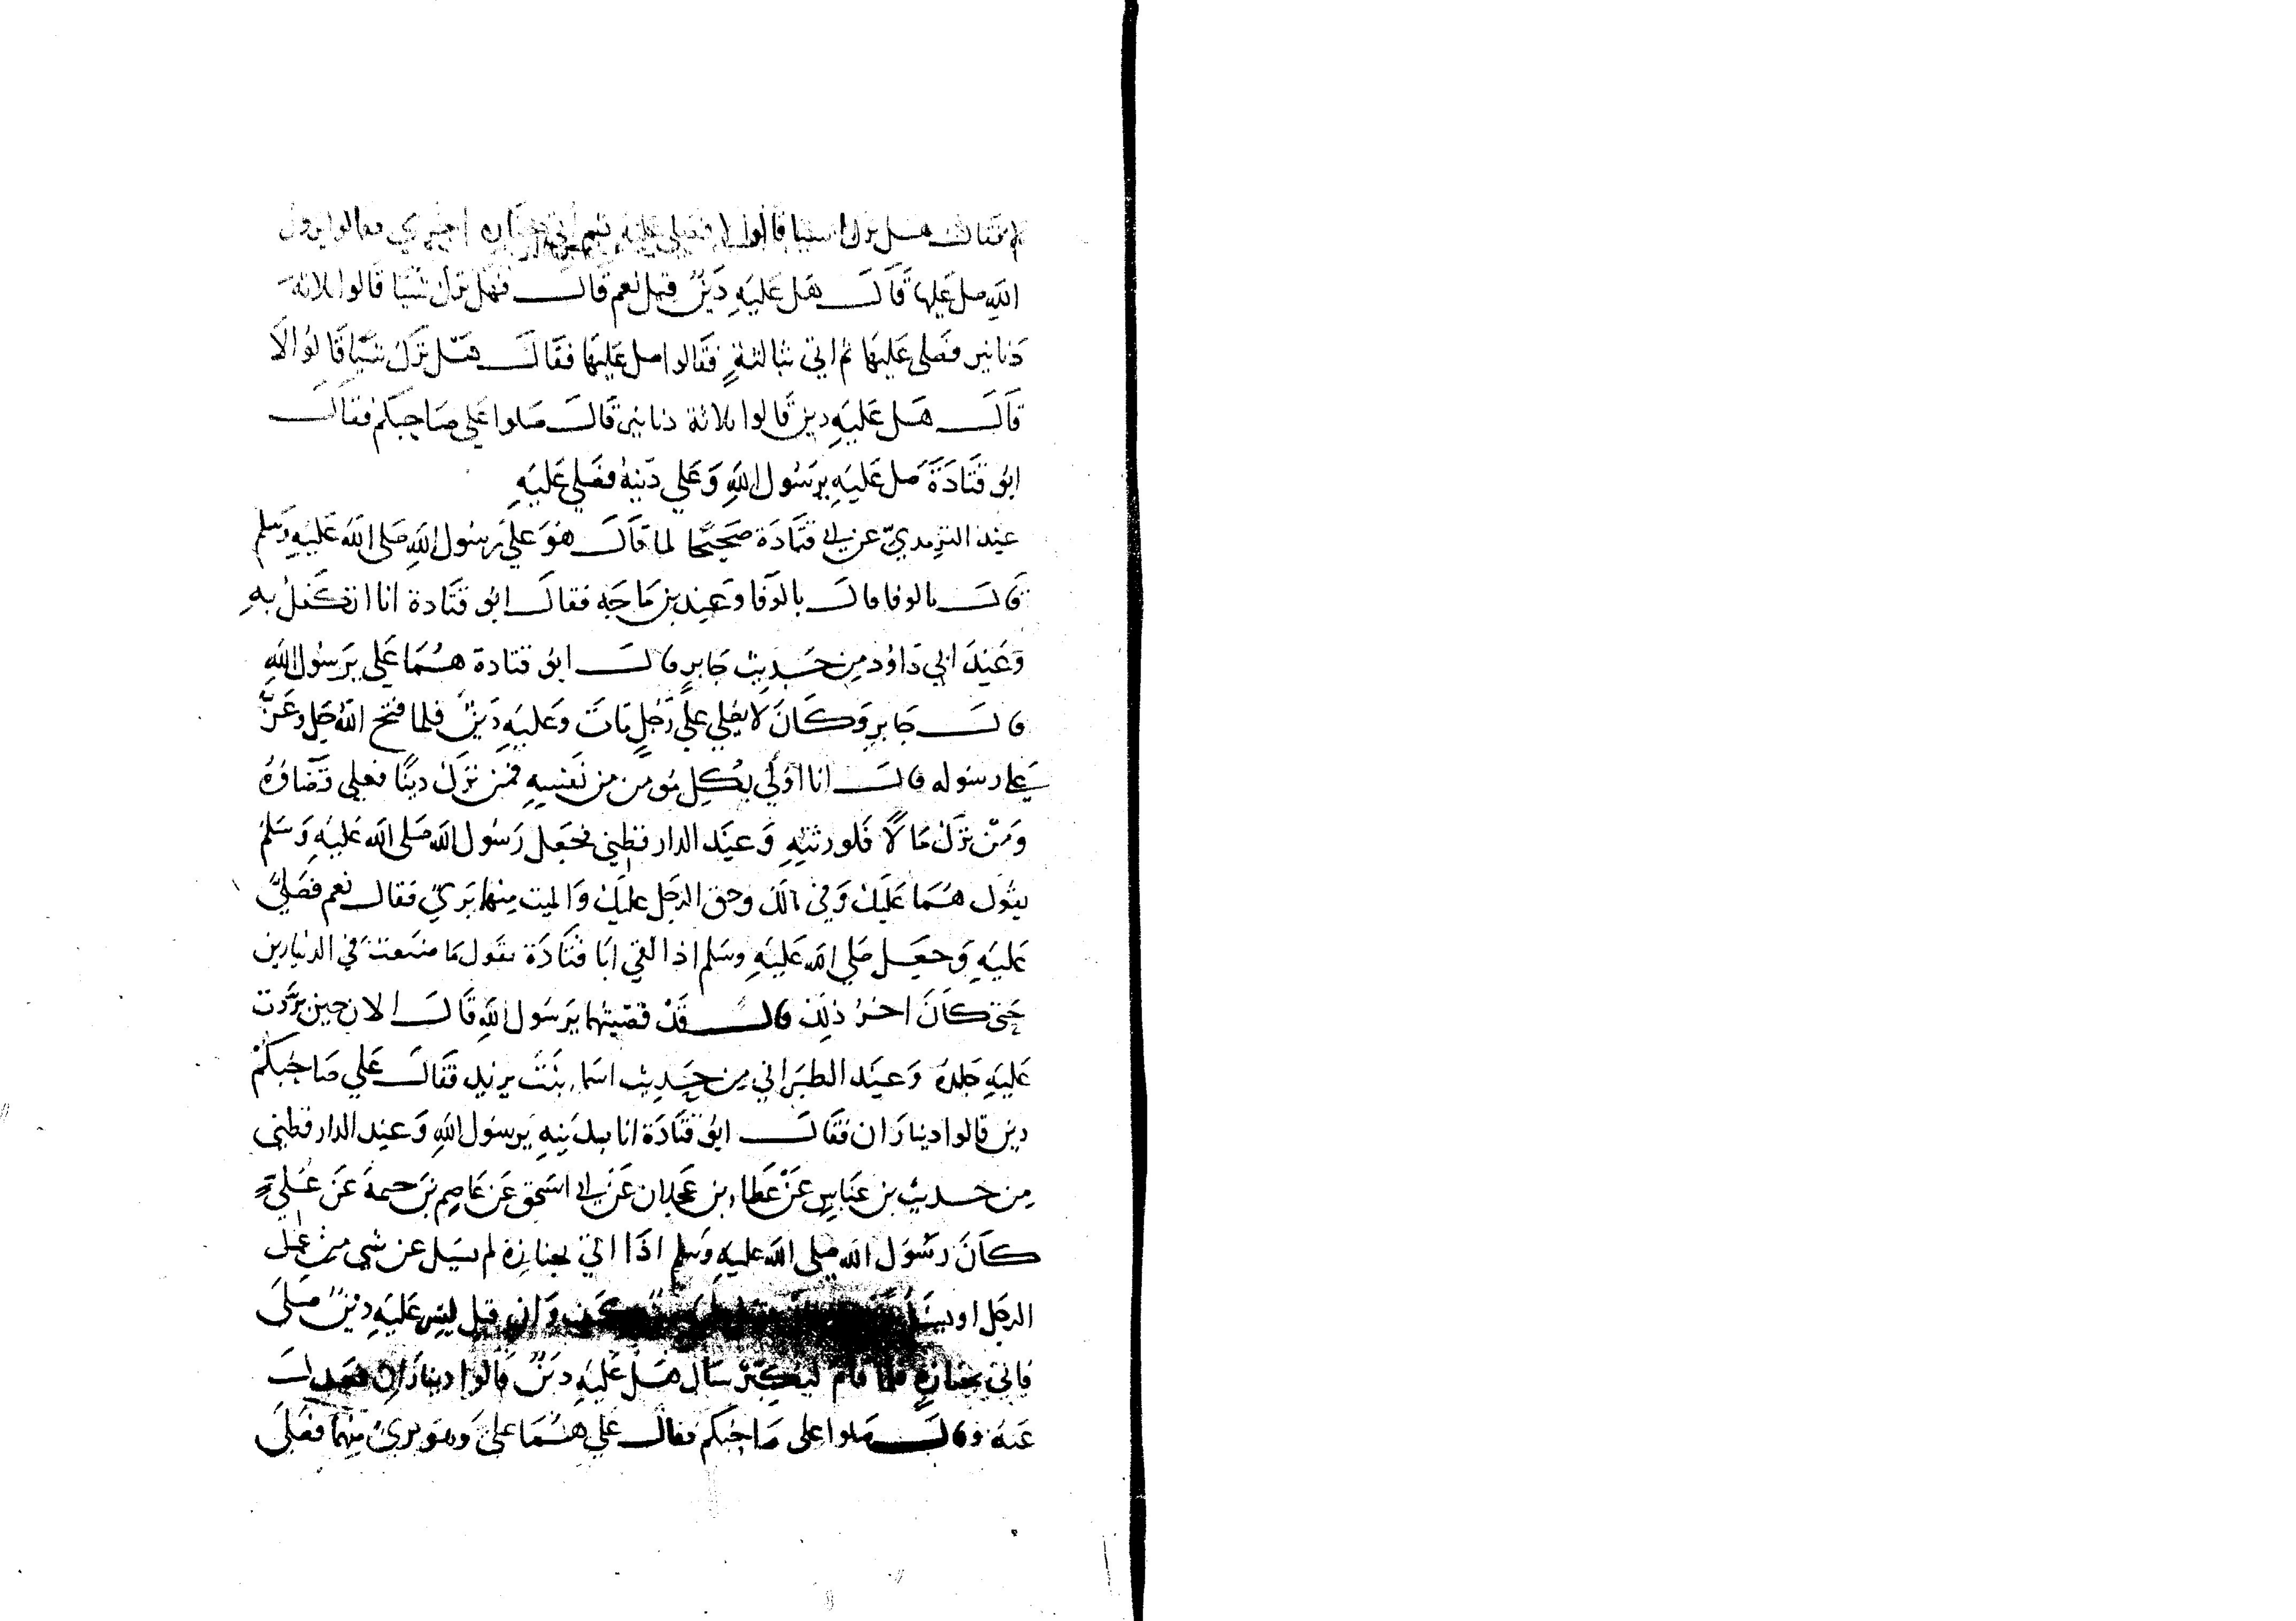 لا فقال هل ترك شيا قالوا لا فصلي عليه ثم اتي بجنازة اخري فقالوا يرسول
الله صل عليها قال هل عليه دين قيل نعم قال فهل ترك شيا قالوا ثلاثة
دنانير فصلى عليها ثم اتي بثالثة فقالوا صل عليها فقال هل ترك شيا قالوا لا
قال هل عليه دين قالوا ثلاثة دنانير قال صلوا علي صاحبكم فقال
ابو قتادة صل عليه يرسول الله وعلي دينه فصلي عليه
عند الترمذي عن ابي قتادة صحيحا لما قال هو علي يرسول الله صلى الله عليه وسلم
قال بالوفا قال بالوفا وعند بن ماجه فقال ابو قتادة انا اتكفل به
وعند ابي داود من حديث جابر قال ابو قتادة هما علي يرسول الله
قال جابر وكان لا يصلي علي رجل مات وعليه دين فلما فتح الله جل وعز
علي رسوله قال انا اولي بكل مومن من نفسه فمن ترك دينا فعلي قضاوه
ومن ترك مالا فلورثته وعند الدارقطني فجعل رسول الله صلى الله عليه وسلم
يقول هما عليك وفي مالك وحق الرجل عليك والميت منهما بري فقال نعم فصلي
عليه وجعل صلي الله عليه وسلم اذا لقي ابا قتادة يقول ما صنعت في الدينارين
حتى كان اخر ذلك قال قد قضيتهما يرسول الله قال الان حين بردت
عليه جلده وعند الطبراني من حديث اسما بنت يزيد فقال علي صاحبكم
دين قالوا ديناران فقال ابو قتادة انا بدينه يرسول الله وعند الدارقطني
من حديث بن عباس عن عطا بن عجلان عن ابي اسحق عن عاصم بن ضمرة عن علي
كان رسول الله صلى الله عليه وسلم اذا اتي بجنازة لم يسيل عن شي من عمل
الرجل او يسيل كف وان قيل ليس عليه دين صلى
فاتي بجنازة فلما قام ليكبر سال هل عليه دين قالوا ديناران فعدل
عنه وقال صلوا على صاحبكم فقال علي هما علي وهو بري منهما فصلى